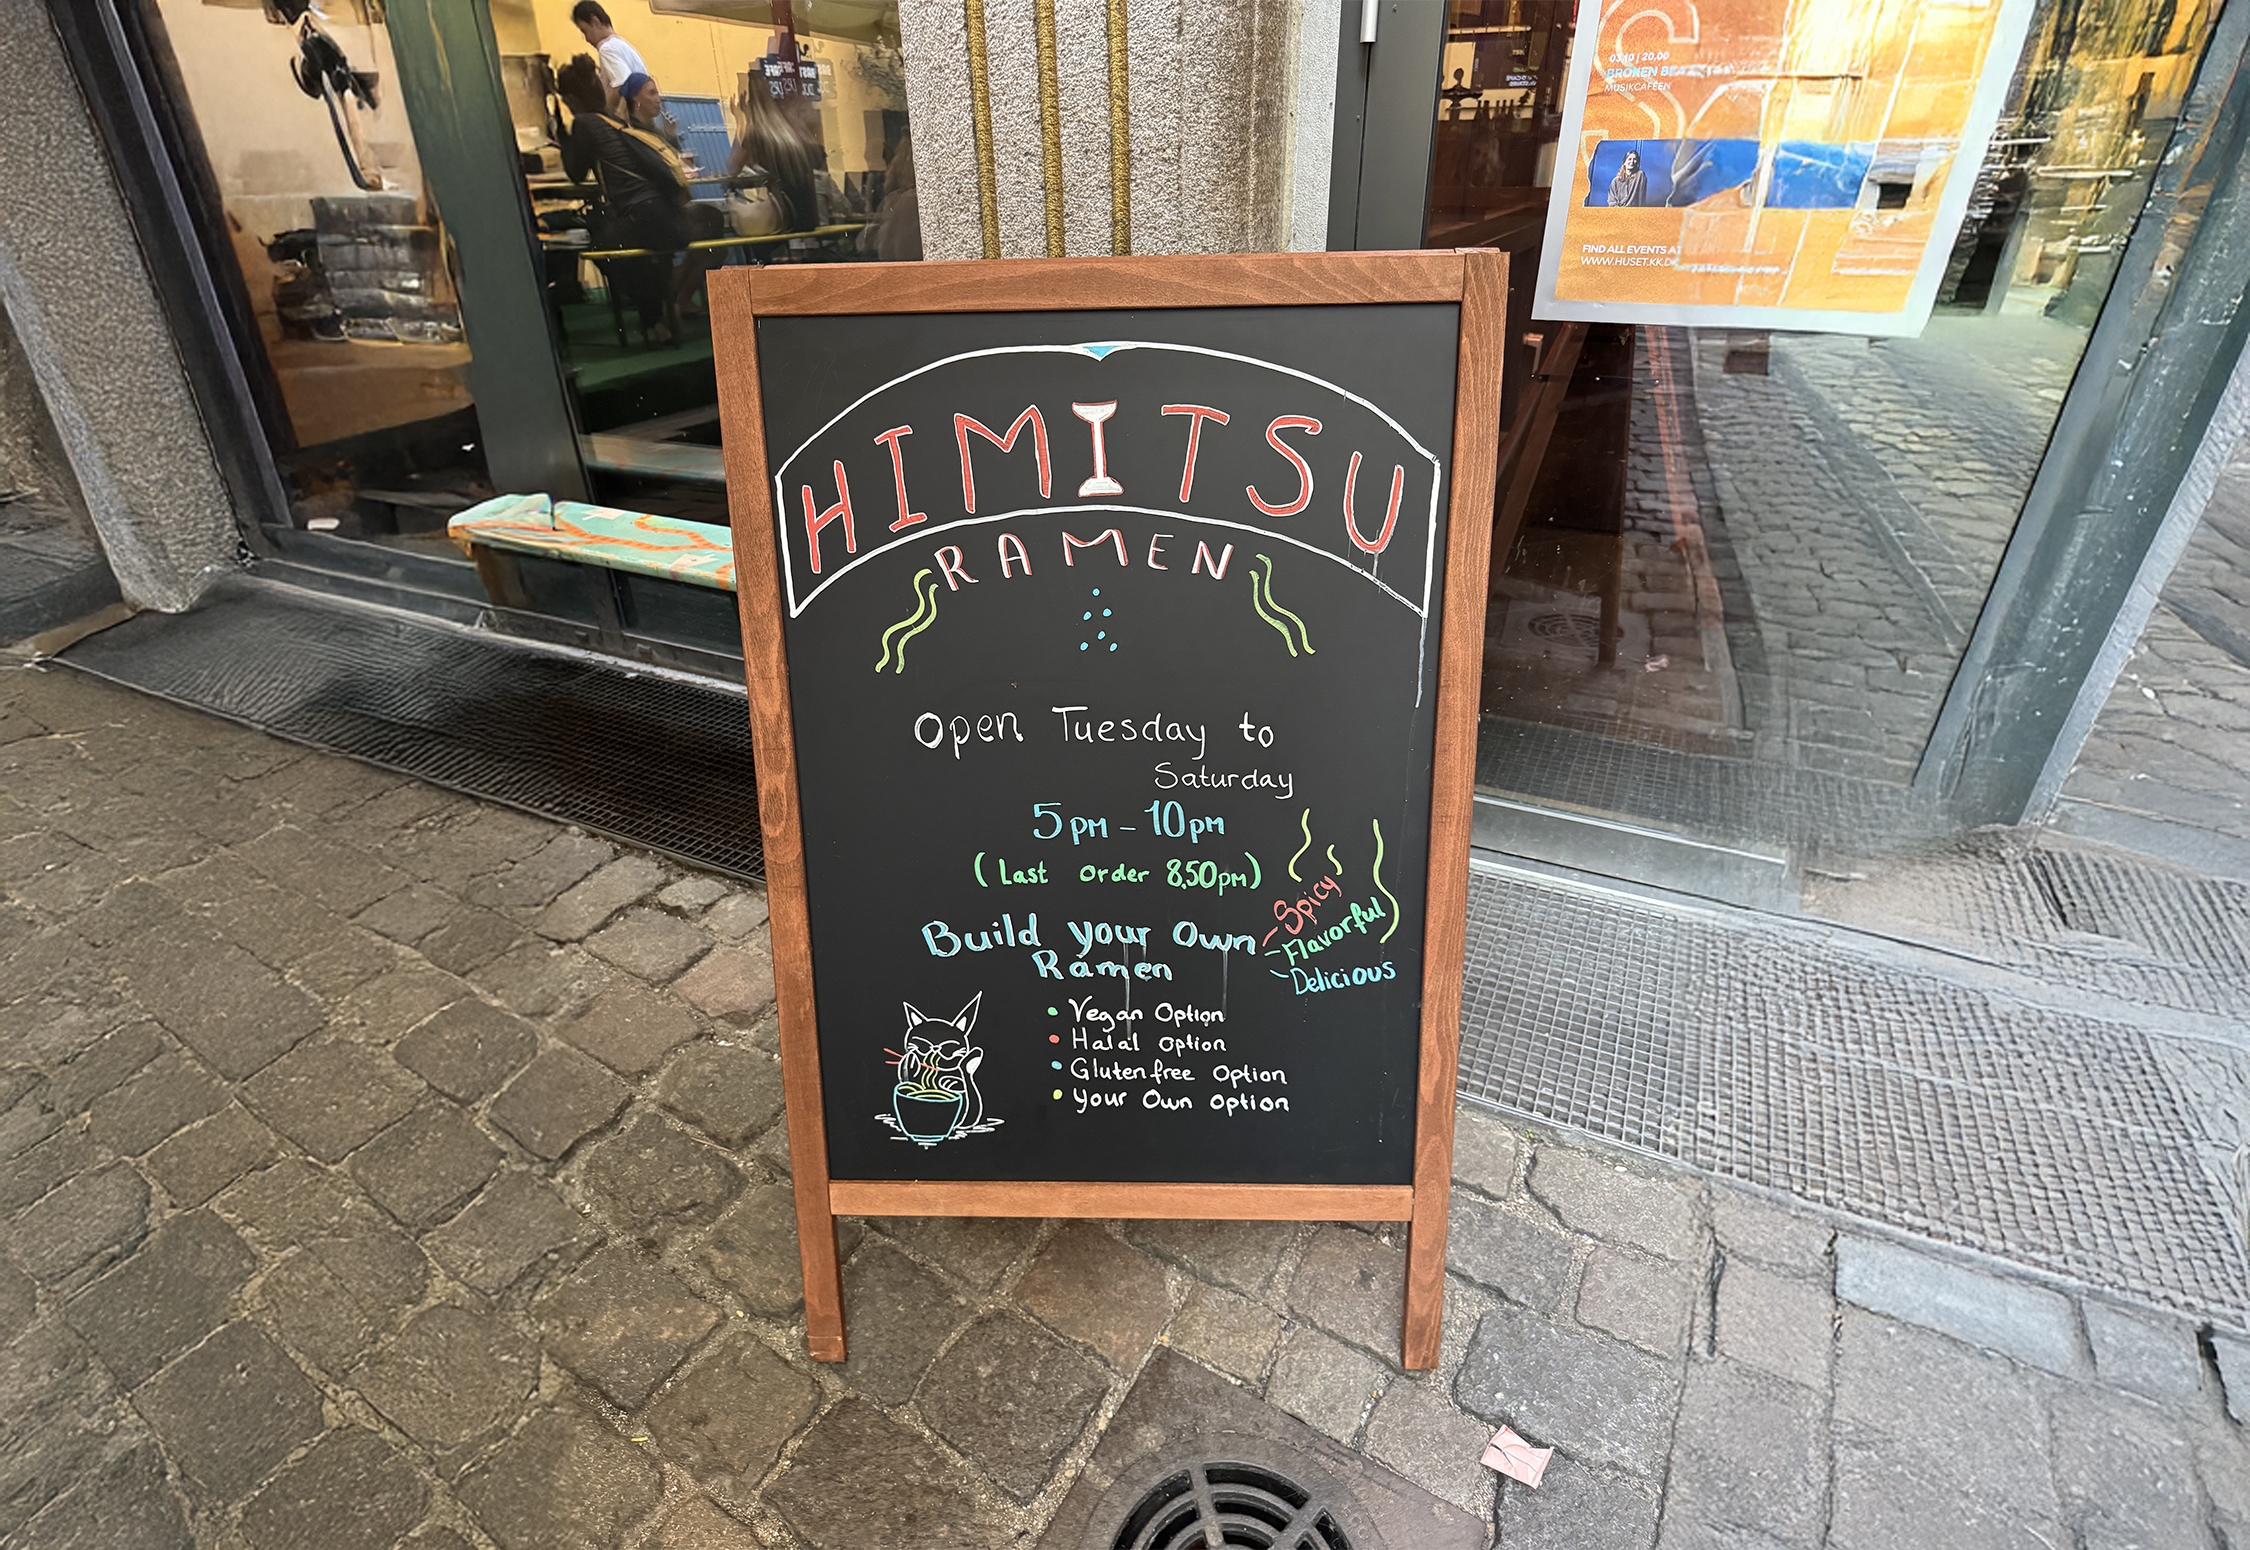 HIMITSU
RAMEN
Open Tuesday to
Saturday
5pm - 10pm
(Last order 8.50pm)
Build your Own
Ramen
- Spicy
- Flavorful
- Delicious
• Vegan Option
• Halal Option
• Gluten free Option
• Your Own Option
03.10 | 20.00
BROKEN
MUSIKCAFEEN
FIND ALL EVENTS AT
WWW.HUSET.KK.DK